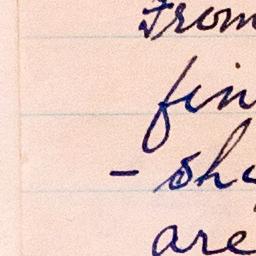 From
fin
- sh
are